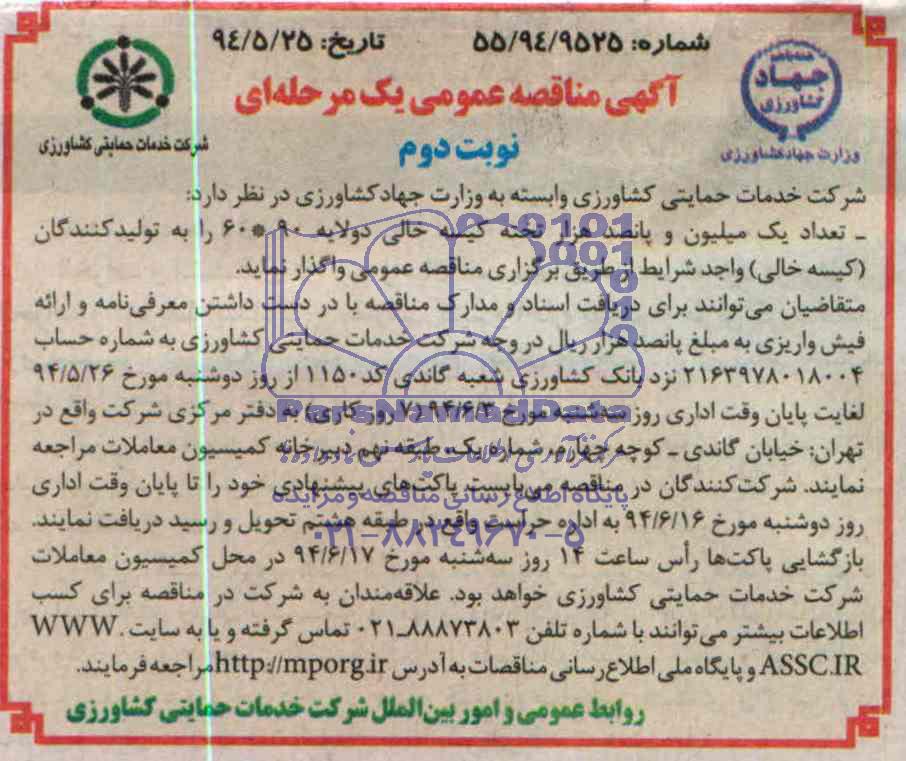 شماره: ۵۵/۹۴/۹۵۲۵
تاریخ: ۹٤/۵/۲۵
جهاد
کشاورزی
وزارت جهادکشاورزی
شرکت خدمات حمایتی کشاورزی
آگهی مناقصه عمومی یک مرحله‌ای
نوبت دوم
شرکت خدمات حمایتی کشاورزی وابسته به وزارت جهادکشاورزی در نظر دارد:
ـ تعداد یک میلیون و پانصد هزار تخته کیسه خالی دولایه ۹۰*۶۰ را به تولیدکنندگان
(کیسه خالی) واجد شرایط از طریق برگزاری مناقصه عمومی واگذار نماید.
متقاضیان می‌توانند برای دریافت اسناد و مدارک مناقصه با در دست داشتن معرفی‌نامه و ارائه
فیش واریزی به مبلغ پانصد هزار ریال در وجه شرکت خدمات حمایتی کشاورزی به شماره حساب
۲۱۶۳۹۷۸۰۱۸۰۰۴ نزد بانک کشاورزی شعبه گاندی کد ۱۱۵۰ از روز دوشنبه مورخ ۹۴/۵/۲۶
لغایت پایان وقت اداری روز سه‌شنبه مورخ ۹۴/۶/۳ (۷ روز کاری) به دفتر مرکزی شرکت واقع در
تهران: خیابان گاندی ـ کوچه چهارم، شماره یک، طبقه نهم دبیرخانه کمیسیون معاملات مراجعه
نمایند. شرکت‌کنندگان در مناقصه می‌بایست پاکت‌های پیشنهادی خود را تا پایان وقت اداری
روز دوشنبه مورخ ۹۴/۶/۱۶ به اداره حراست واقع در طبقه هشتم تحویل و رسید دریافت نمایند.
بازگشایی پاکت‌ها رأس ساعت ۱۴ روز سه‌شنبه مورخ ۹۴/۶/۱۷ در محل کمیسیون معاملات
شرکت خدمات حمایتی کشاورزی خواهد بود. علاقه‌مندان به شرکت در مناقصه برای کسب
اطلاعات بیشتر می‌توانند با شماره تلفن ۸۸۸۷۳۸۰۳ـ۰۲۱ تماس گرفته و یا به سایت WWW.
ASSC.IR و پایگاه ملی اطلاع‌رسانی مناقصات به آدرس http://mporg.ir مراجعه فرمایند.
روابط عمومی و امور بین‌الملل شرکت خدمات حمایتی کشاورزی
ParsNamadData
پایگاه اطلاع رسانی مناقصه و مزایده
۰۲۱-۸۸۳۴۹۶۷۰-۵